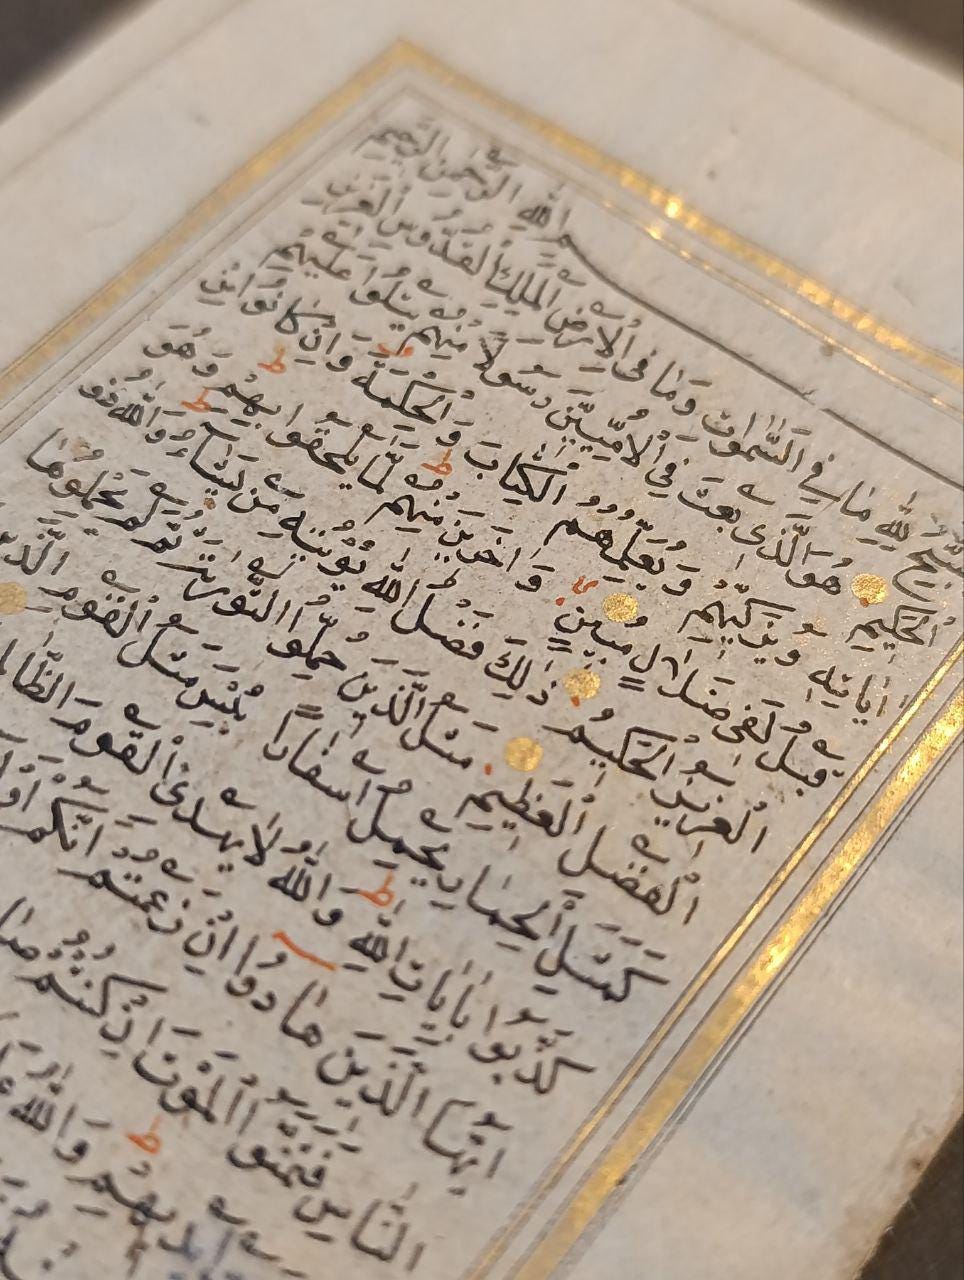 بِسْمِ اللهِ الرَّحْمٰنِ الرَّحِيمِ
يُسَبِّحُ لِلّٰهِ مَا فِي السَّمٰوَاتِ وَمَا فِي الْاَرْضِ الْمَلِكِ الْقُدُّوسِ الْعَزِيزِ
الْحَكِيمِ هُوَ الَّذِي بَعَثَ فِي الْاُمِّيِّينَ رَسُولًا مِنْهُمْ يَتْلُوا عَلَيْهِمْ
اٰيَاتِهِ وَيُزَكِّيهِمْ وَيُعَلِّمُهُمُ الْكِتَابَ وَالْحِكْمَةَ وَاِنْ كَانُوا مِنْ
قَبْلُ لَفِي ضَلَالٍ مُبِينٍ وَاٰخَرِينَ مِنْهُمْ لَمَّا يَلْحَقُوا بِهِمْ وَهُوَ
الْعَزِيزُ الْحَكِيمُ ذٰلِكَ فَضْلُ اللهِ يُؤْتِيهِ مَنْ يَشَاءُ وَاللهُ ذُو
الْفَضْلِ الْعَظِيمِ مَثَلُ الَّذِينَ حُمِّلُوا التَّوْرٰيةَ ثُمَّ لَمْ يَحْمِلُوهَا
كَمَثَلِ الْحِمَارِ يَحْمِلُ اَسْفَارًا بِئْسَ مَثَلُ الْقَوْمِ الَّذِ
كَذَّبُوا بِاٰيَاتِ اللهِ وَاللهُ لَا يَهْدِي الْقَوْمَ الظَّالِ
اَيُّهَا الَّذِينَ هَادُوا اِنْ زَعَمْتُمْ اَنَّكُمْ اَوْ
النَّاسِ فَتَمَنَّوُا الْمَوْتَ اِنْ كُنْتُمْ صَا
وَاللهُ